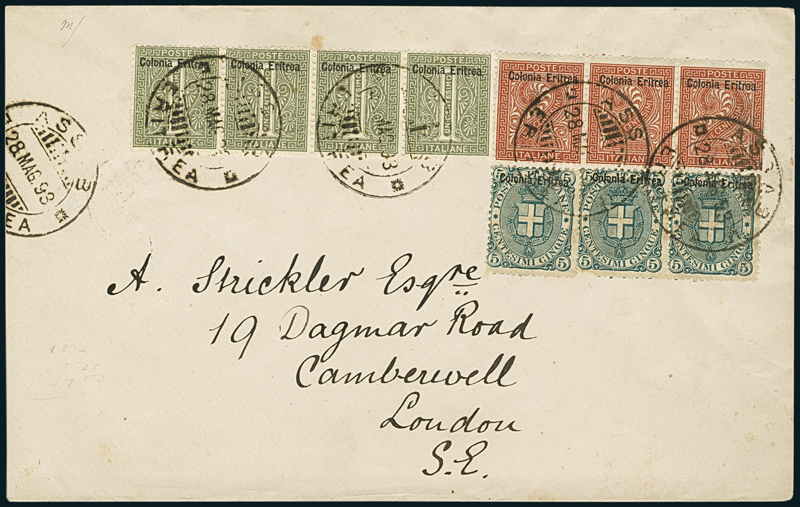 POSTE POSTE POSTE POSTE POSTE POSTE POSTE
Colonia Eritrea Colonia Eritrea Colonia Eritrea Colonia Eritrea Colonia Eritrea Colonia Eritrea Colonia Eritrea
ITALIANE ITALIANE ITALIANE
28 MAG 93
Colonia Eritrea Colonia Eritrea Colonia Eritrea
CENTESIMI CINQUE CENTESIMI CINQUE CENTESIMI CINQUE
5 5 5 5 5 5
A. Strickler Esqre
19 Dagmar Road
Camberwell
London
S.E.